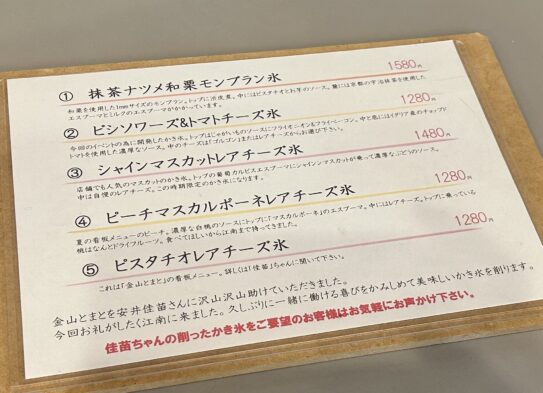 ① 抹茶ナツメ和栗モンブラン氷 1580円
和栗を使用した1mmサイズのモンブラン。トップに渋皮煮。中にはピスタチオとお芋のソース。麓には京都の宇治抹茶を使用した
エスプーマとミルクのエスプーマがかかっています。
② ビシソワーズ&トマトチーズ氷 1280円
今回のイベントの為に開発したかき氷。トップはじゃがいものソースにフライオニオン&フライベーコン。中と底にはイタリア産のチョップド
トマトを使用した濃厚なソース。中のチーズは「ゴルゴン」またはレアチーズからお選び下さい。
③ シャインマスカットレアチーズ氷 1480円
店舗でも人気のマスカットのかき氷。トップの葡萄カルピスエスプーマにシャインマスカットが乗って濃厚なぶどうのソース。
中は自慢のレアチーズ。この時期限定のかき氷になります。
④ ピーチマスカルポーネレアチーズ氷 1280円
夏の看板メニューのピーチ。濃厚な白桃のソースにトップに「マスカルポーネ」のエスプーマ。中にはレアチーズ。トップに乗っている
桃はなんとドライフルーツ。食べてほしいから江南まで持ってきました。
⑤ ピスタチオレアチーズ氷 1280円
これは「金山とまと」の看板メニュー。詳しくは「佳苗」ちゃんに聞いて下さい。
金山とまとを安井佳苗さんに沢山沢山助けていただきました。
今回お礼がしたく江南に来ました。久しぶりに一緒に働ける喜びをかみしめて美味しいかき氷を削ります。
佳苗ちゃんの削ったかき氷をご要望のお客様はお気軽にお声かけ下さい。